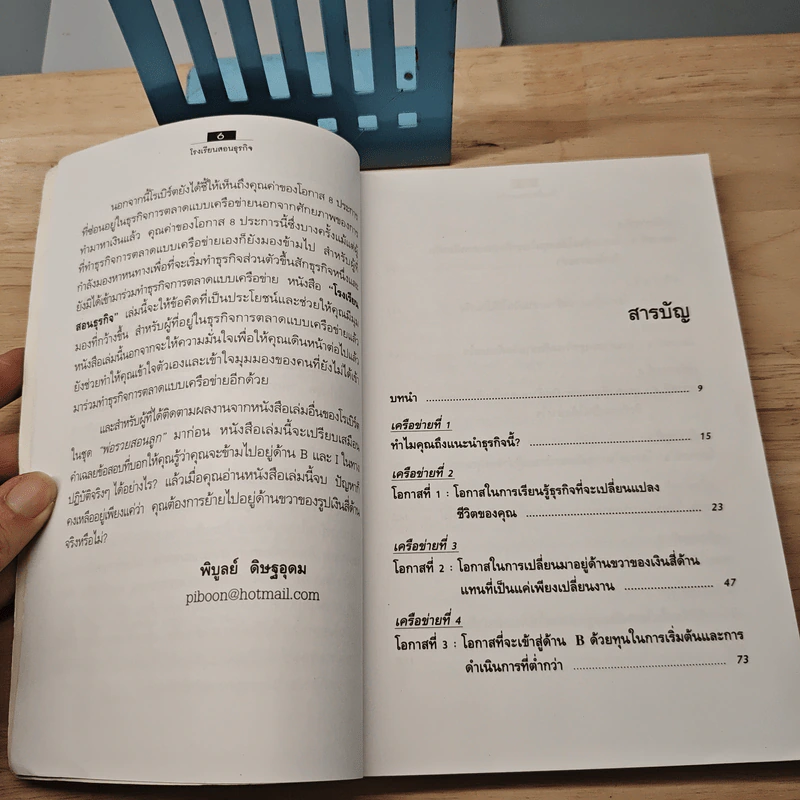 ๖
โรงเรียนสอนธุรกิจ
นอกจากนี้โรเบิร์ตยังได้ชี้ให้เห็นถึงคุณค่าของโอกาส 8 ประการ
ที่ซ่อนอยู่ในธุรกิจการตลาดแบบเครือข่ายนอกจากศักยภาพของการ
ทำมาหาเงินแล้ว คุณค่าของโอกาส 8 ประการนี้ซึ่งบางครั้งแม้แต่ผู้
ที่ทำธุรกิจการตลาดแบบเครือข่ายเองก็ยังมองข้ามไป สำหรับผู้ที่
กำลังมองหาหนทางเพื่อที่จะเริ่มทำธุรกิจส่วนตัวขึ้นสักธุรกิจหนึ่งและ
ยังมิได้เข้ามาร่วมทำธุรกิจการตลาดแบบเครือข่าย หนังสือ "โรงเรียน
สอนธุรกิจ" เล่มนี้จะให้ข้อคิดที่เป็นประโยชน์และช่วยให้คุณมีมุม
มองที่กว้างขึ้น สำหรับผู้ที่อยู่ในธุรกิจการตลาดแบบเครือข่ายแล้ว
หนังสือเล่มนี้นอกจากจะให้ความมั่นใจเพื่อให้คุณเดินหน้าต่อไปแล้ว
ยังช่วยทำให้คุณเข้าใจตัวเองและเข้าใจมุมมองของคนที่ยังไม่ได้เข้า
มาร่วมทำธุรกิจการตลาดแบบเครือข่ายอีกด้วย
และสำหรับผู้ที่ได้ติดตามผลงานจากหนังสือเล่มอื่นของโรเบิร์ต
ในชุด "พ่อรวยสอนลูก" มาก่อน หนังสือเล่มนี้จะเปรียบเสมือน
คำเฉลยข้อสอบที่บอกให้คุณรู้ว่าคุณจะข้ามไปอยู่ด้าน B และ I ในทาง
ปฏิบัติจริงๆ ได้อย่างไร? แล้วเมื่อคุณอ่านหนังสือเล่มนี้จบ ปัญหาก็
คงเหลืออยู่เพียงแค่ว่า คุณต้องการย้ายไปอยู่ด้านขวาของรูปเงินสี่ด้าน
จริงหรือไม่?
พิบูลย์ ดิษฐอุดม
piboon@hotmail.com
สารบัญ
บทนำ ........ 9
เครือข่ายที่ 1
ทำไมคุณถึงแนะนำธุรกิจนี้? ........ 15
เครือข่ายที่ 2
โอกาสที่ 1 : โอกาสในการเรียนรู้ธุรกิจที่จะเปลี่ยนแปลง
ชีวิตของคุณ ........ 23
เครือข่ายที่ 3
โอกาสที่ 2 : โอกาสในการเปลี่ยนมาอยู่ด้านขวาของเงินสี่ด้าน
แทนที่เป็นแค่เพียงเปลี่ยนงาน ........ 47
เครือข่ายที่ 4
โอกาสที่ 3 : โอกาสที่จะเข้าสู่ด้าน B ด้วยทุนในการเริ่มต้นและการ
ดำเนินการที่ต่ำกว่า ........ 73